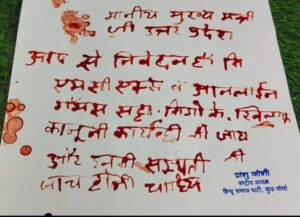 मानीय मुख्य मन्त्री
जी उत्तर प्रदेश
आप से निवेदन है कि
एमसी एक्स व आनलाईन
गेमिंग सट्टा किंगो के खिलाफ
कानूनी कार्यवाही की जाय
और इनकी सम्पत्ती की
जाच होनी चाहिये
प्रांशु जोशी
राष्ट्रीय अध्यक्ष
हिन्दू समाज पार्टी, युवा मोर्चा